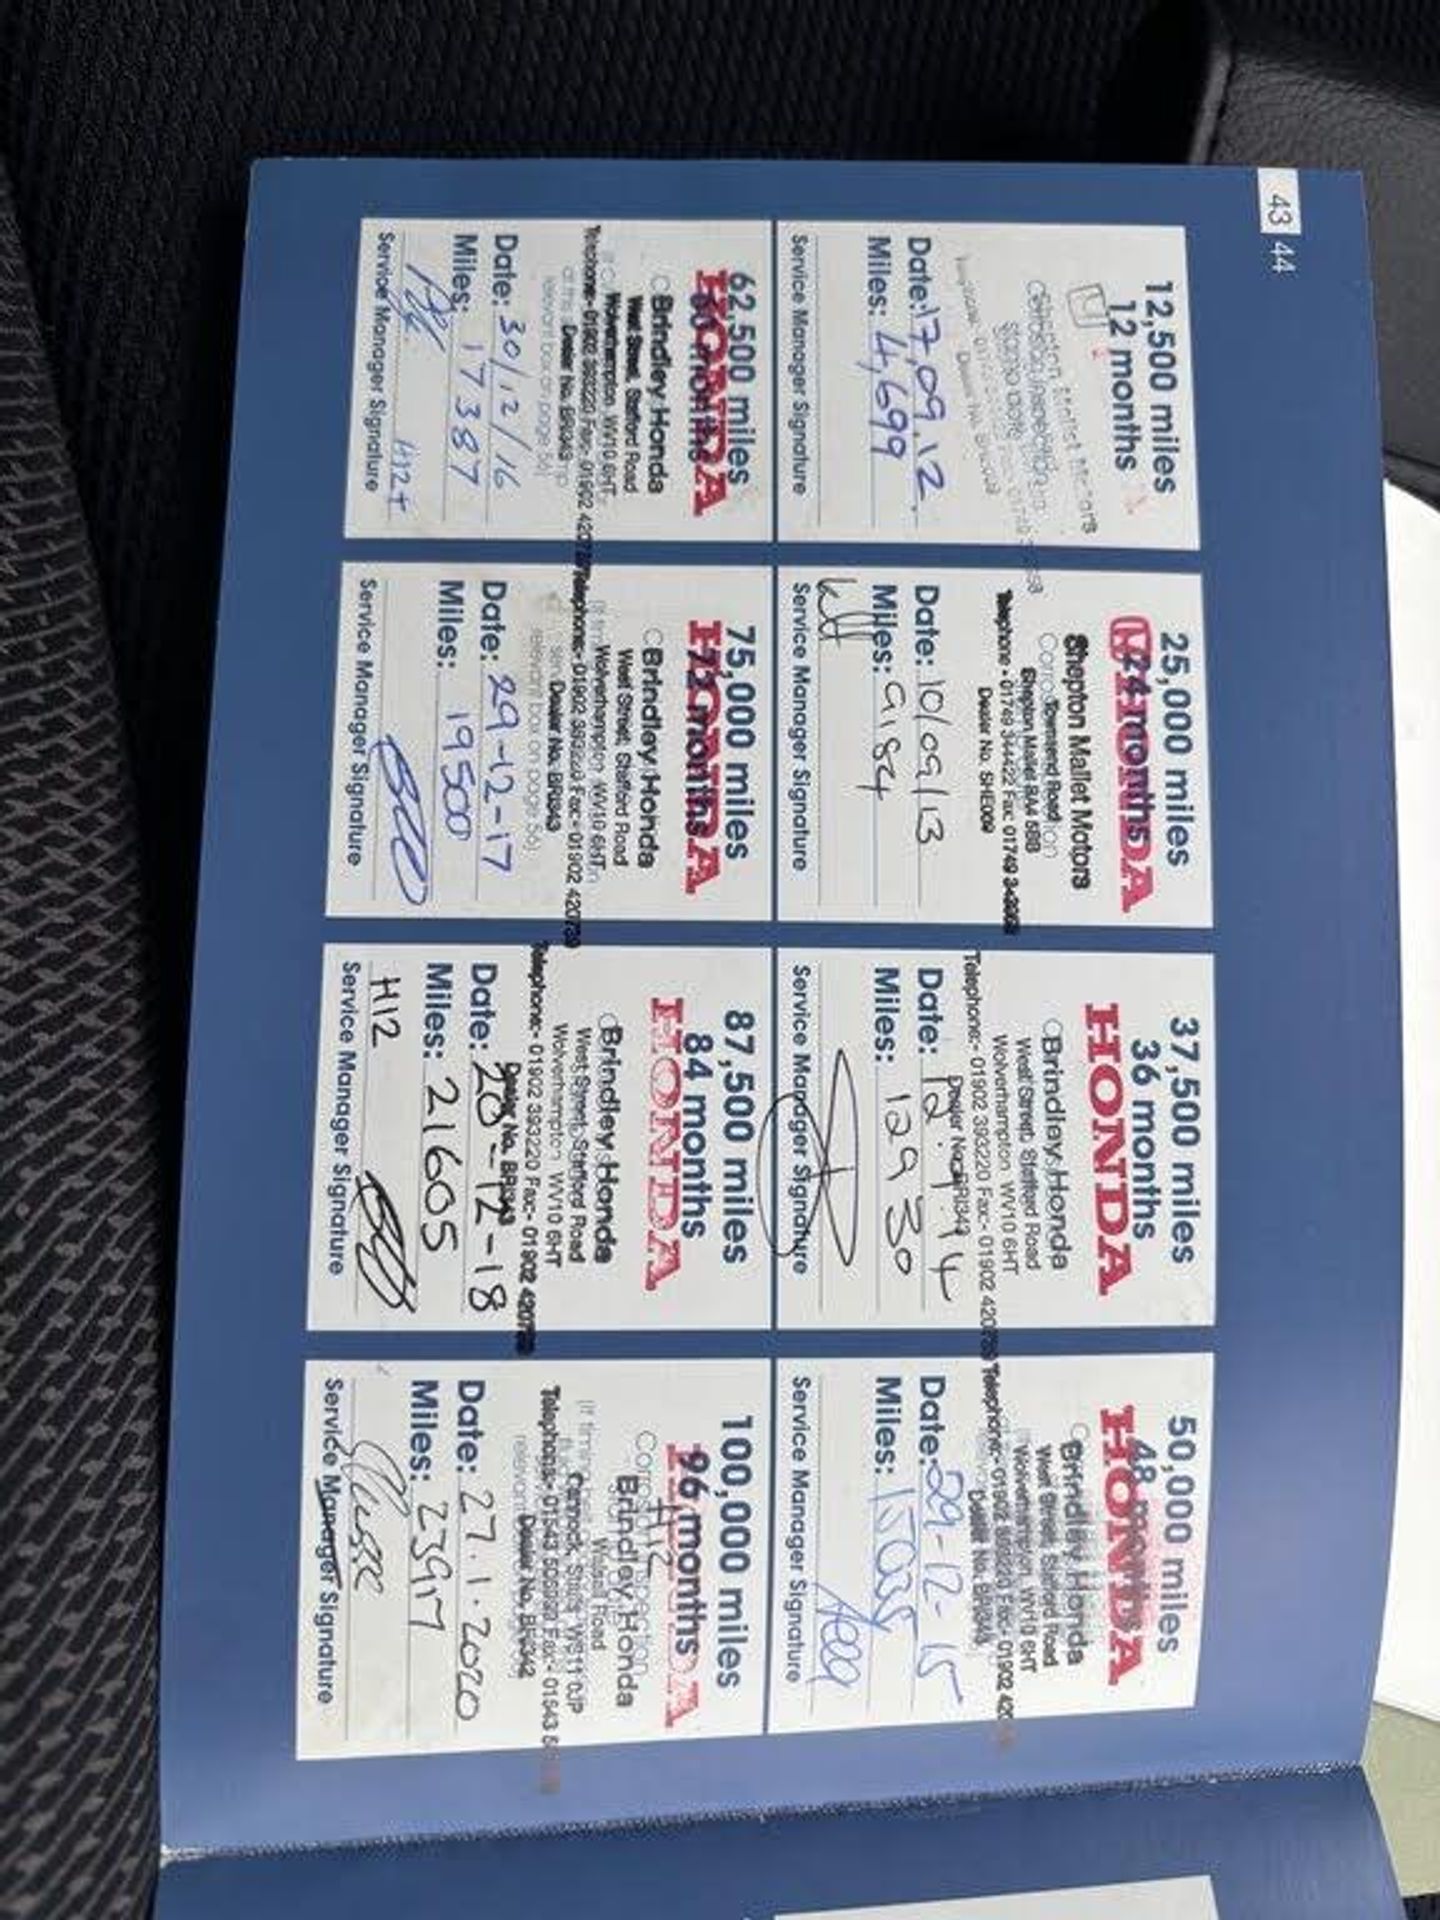 43 44
12,500 miles
12 months
Date: 17.09.12.
Miles: 4,699
Service Manager Signature
25,000 miles
24 months
HONDA
Shepton Mallet Motors
Townsend Road
Shepton Mallet BA4 5BB
Telephone - 01749 344422 Fax: 01749
Dealer No. SHE009
Date: 10/09/13
Miles: 9184
Service Manager Signature
37,500 miles
36 months
HONDA
Brindley Honda
West Street, Stafford Road
Wolverhampton WV10 6HT
Telephone:- 01902 393220 Fax:- 01902 420789
Dealer No. BRI343
Date: 12.9.14
Miles: 12930
Service Manager Signature
50,000 miles
48 months
HONDA
Brindley Honda
West Street, Stafford Road
Wolverhampton, WV10 6HT
Telephone:- 01902 393220 Fax:- 01902
Dealer No. BRI343
Date: 29-12-15
Miles:
Service Manager Signature
62,500 miles
60 months
HONDA
Brindley Honda
West Street, Stafford Road
Wolverhampton, WV10 6HT
Telephone:- 01902 393220 Fax:- 01902
Dealer No. BRI343
relevant box on page 56)
Date: 30/12/16
Miles: 17387
Service Manager Signature
75,000 miles
72 months
HONDA
Brindley Honda
West Street, Stafford Road
Wolverhampton, WV10 6HT
Telephone:- 01902 393220 Fax:- 01902 420789
Dealer No. BRI343
relevant box on page 56)
Date: 29-12-17
Miles: 19500
Service Manager Signature
87,500 miles
84 months
HONDA
Brindley Honda
West Street, Stafford Road
Wolverhampton WV10 6HT
Telephone:- 01902 393220 Fax:- 01902 420789
Dealer No. BRI343
Date: 20-12-18
Miles: 21605
H12
Service Manager Signature
100,000 miles
96 months
H12
Brindley Honda
Walsall Road
Cannock, Staffs WS11 0JP
Dealer No. BRI342
Date: 27.1.2020
Miles: 23917
Service Manager Signature